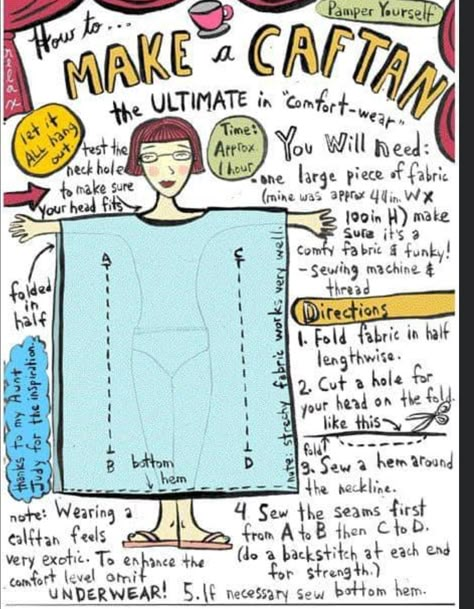 Pamper Yourself
How to...
MAKE a CAFTAN
the ULTIMATE in "comfort-wear"
relax
let it
ALL hang
out.
test the
neck hole
to make sure
your head fits
Time:
Approx.
1 hour
You Will need:
-one large piece of fabric
(mine was approx 44in. W x
100in H) make
sure it's a
comfy fabric & funky!
-Sewing machine &
thread
folded
in
half
A
C
B
D
bottom
hem
note: strechy fabric works very well.
thanks to my Aunt
Judy for the inspiration.
Directions
1. Fold fabric in half
lengthwise.
2. Cut a hole for
your head on the fold.
like this
fold
3. Sew a hem around
the neckline.
4. Sew the seams first
from A to B then C to D.
(do a backstitch at each end
for strength.)
5. If necessary sew bottom hem.
note: Wearing a
calftan feels
very exotic. To enhance the
comfort level omit
UNDERWEAR!